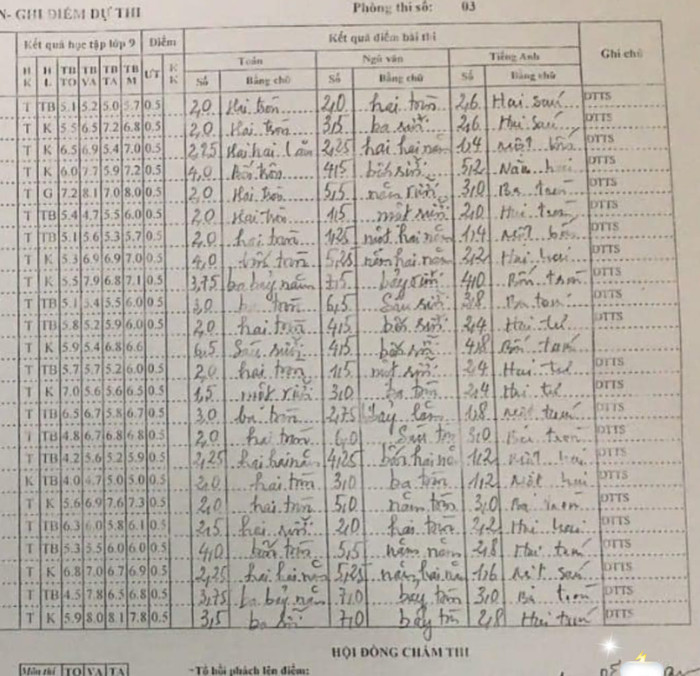 N- GHI ĐIỂM DỰ THI Phòng thi số: 03
Kết quả học tập lớp 9 Điểm Kết quả điểm bài thi Ghi chú
Toán Ngữ văn Tiếng Anh
HK HL TB TO TB VA TB TA TB M ƯT KK Số Bằng chữ Số Bằng chữ Số Bằng chữ
T TB 5.1 5.2 5.0 5.7 0.5 2,0 Hai tròn 2,0 hai tròn 2,6 Hai sáu DTTS
T K 5.5 6.5 7.2 6.8 0.5 2,0 Hai tròn 3,5 ba rưỡi 2,6 Hai sáu DTTS
T K 6.5 6.9 5.4 7.0 0.5 2,25 Hai hai lăm 2,25 hai hai năm 1,4 Một bốn DTTS
T K 6.0 7.7 5.9 7.2 0.5 4,0 Bốn tròn 4,5 bốn rưỡi 5,2 Năm hai DTTS
T G 7.2 8.1 7.0 8.0 0.5 2,0 Hai tròn 5,5 năm rưỡi 3,0 Ba tròn DTTS
T TB 5.4 4.7 5.5 6.0 0.5 2,0 Hai tròn 1,5 một rưỡi 2,0 Hai tròn DTTS
T TB 5.1 5.6 5.3 5.7 0.5 2,0 hai tròn 1,25 một hai năm 1,4 Một bốn DTTS
T K 5.3 6.9 6.9 7.0 0.5 4,0 bốn tròn 5,25 năm hai năm 2,2 Hai hai DTTS
T K 5.5 7.9 6.8 7.1 0.5 3,75 ba bảy năm 7,5 bảy rưỡi 4,0 Bốn tròn DTTS
T TB 5.1 5.4 5.5 6.0 0.5 3,0 ba tròn 6,5 Sáu rưỡi 3,8 Ba tám DTTS
T TB 5.8 5.2 5.9 6.0 0.5 2,0 hai tròn 4,5 bốn rưỡi 2,4 Hai tư DTTS
T K 5.9 5.4 6.8 6.6 6,5 Sáu rưỡi 4,5 bốn rưỡi 4,8 Bốn tám
T TB 5.7 5.7 5.2 6.0 0.5 2,0 hai tròn 1,5 một rưỡi 2,4 Hai tư DTTS
T K 7.0 5.6 5.6 6.5 0.5 1,5 một rưỡi 3,0 ba tròn 2,4 Hai tư DTTS
T TB 6.5 6.7 5.8 6.7 0.5 3,0 ba tròn 2,75 bảy lăm 1,8 Một tám DTTS
T TB 4.8 6.7 6.8 6.8 0.5 2,0 hai tròn 6,0 Sáu tròn 3,0 Ba tròn DTTS
T TB 4.2 5.6 5.2 5.9 0.5 2,25 hai hai năm 4,25 bốn hai năm 1,2 Một hai DTTS
K TB 4.0 4.7 5.0 5.0 0.5 2,0 hai tròn 3,0 ba tròn 1,2 Một hai DTTS
T K 5.6 6.9 7.6 7.3 0.5 2,0 hai tròn 5,0 năm tròn 3,0 Ba tròn DTTS
T TB 6.3 6.0 5.8 6.1 0.5 2,5 hai rưỡi 2,0 hai tròn 2,2 Hai hai DTTS
T TB 5.3 5.5 6.0 6.0 0.5 4,0 bốn tròn 5,5 năm năm 2,8 Hai tám DTTS
T K 6.8 7.0 6.7 6.9 0.5 2,25 hai hai năm 5,25 năm hai năm 1,6 Một sáu DTTS
T TB 4.5 7.8 6.5 6.8 0.5 3,75 ba bảy năm 7,0 bảy tròn 3,0 Ba tròn DTTS
T K 5.9 8.0 8.1 7.8 0.5 3,5 ba rưỡi 7,0 bảy tròn 2,8 Hai tám DTTS
HỘI ĐỒNG CHẤM THI
Môn thi TO VA TA - Tổ hồi phách lên điểm: